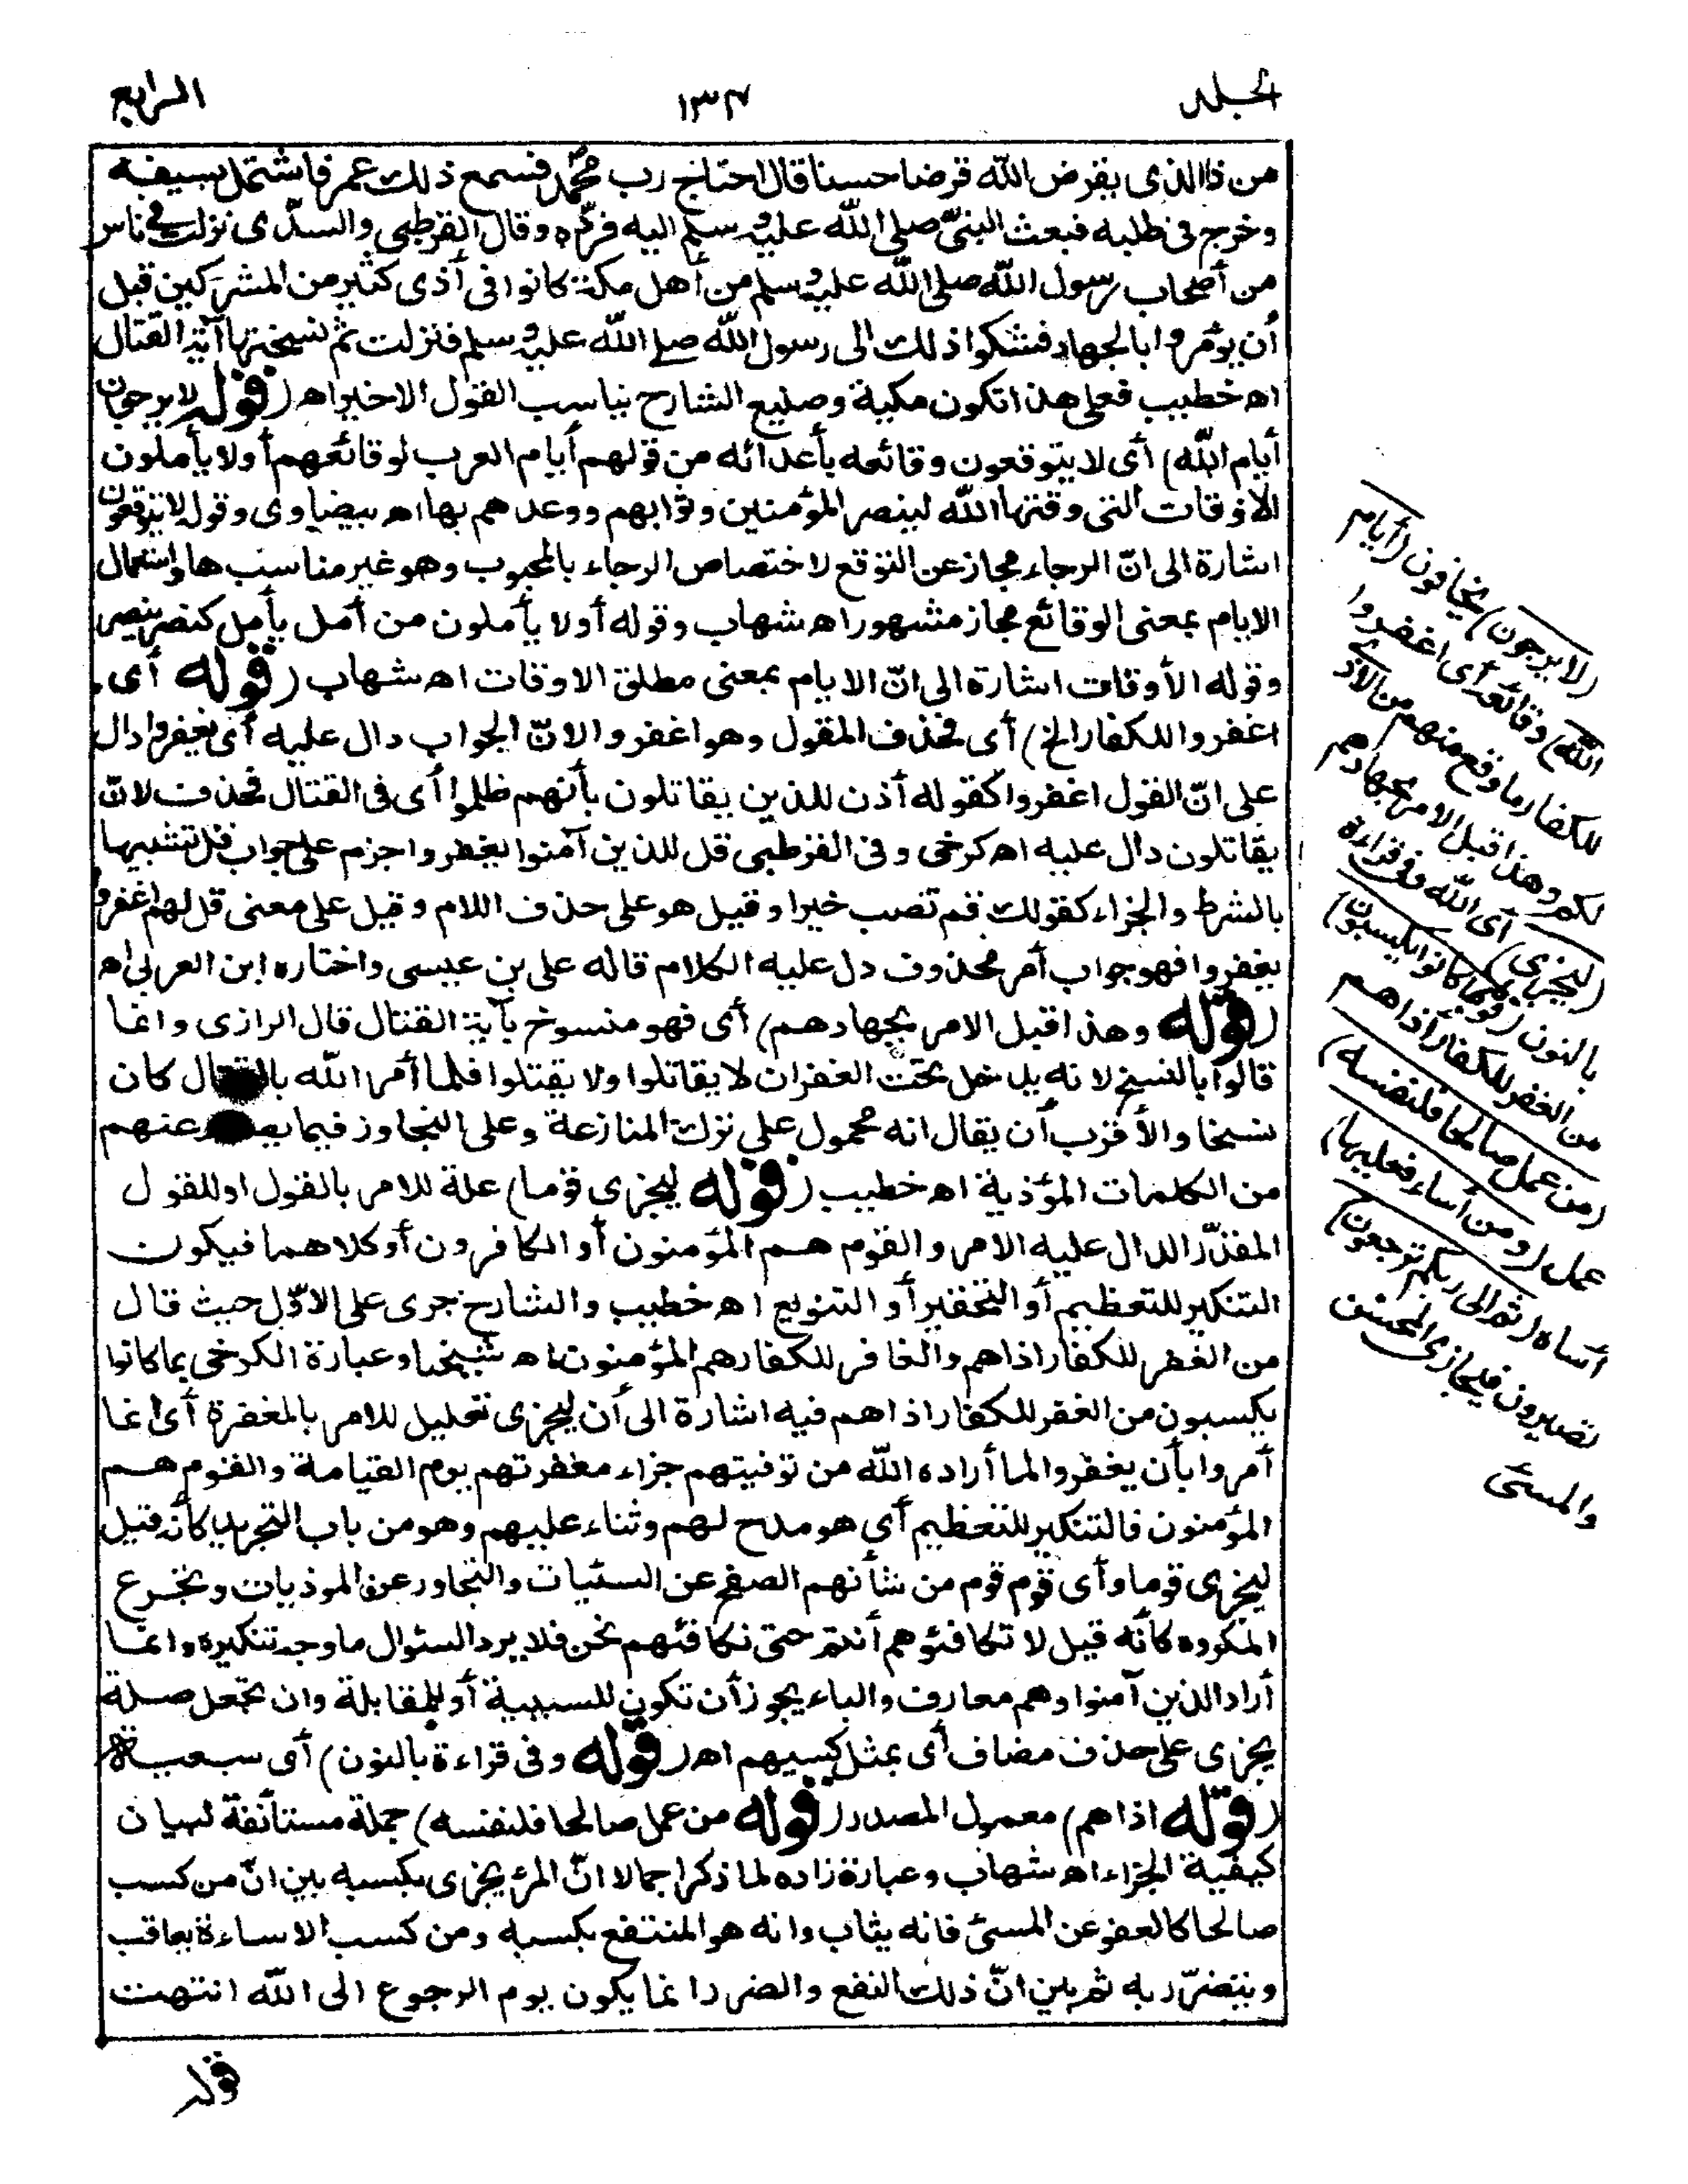 الجلد
١٣٤
الرابع
من ذا الذى يقرض الله قرضا حسنا قال احتاج رب محمد فسمع ذلك عمر فاشتمل بسيفه
وخرج فى طلبه فبعث النبىّ صلى الله عليه وسلم اليه فردّه وقال القرطبى والسدّى نزلت فى ناس
من أصحاب رسول الله صلى الله عليه وسلم من أهل مكة كانوا فى أذى كثير من المشركين قبل
أن يؤمروا بالجهاد فشكوا ذلك الى رسول الله صلى الله عليه وسلم فنزلت ثم نسختها آية القتال
اه خطيب فعلى هذا تكون مكية وصنيع الشارح يناسب القول الاخير اه (قوله لا يرجون
أيام الله) أى لا يتوقعون وقائعه بأعدائه من قولهم أيام العرب لوقائعهم أو لا يأملون
الأوقات التى وقتها الله لينصر المؤمنين وثوابهم ووعدهم بها اه بيضاوى وقوله لا يتوقعون
اشارة الى انّ الرجاء مجاز عن التوقع لاختصاص الرجاء بالمحبوب وهو غير مناسب هنا واستعمال
الايام بمعنى الوقائع مجاز مشهور اه شهاب وقوله أو لا يأملون من أمل يأمل كنصر ينصر
وقوله الأوقات اشارة الى انّ الايام بمعنى مطلق الاوقات اه شهاب (قوله أى
اغفروا للكفار الخ) أى فحذف المقول وهو اغفروا لانّ الجواب دال عليه أى يغفروا دال
على انّ القول اغفروا كقوله أذن للذين يقاتلون بأنهم ظلموا أى فى القتال فحذف لانّ
يقاتلون دال عليه اه كرخى وفى القرطبى قل للذين آمنوا يغفروا جزم على جواب قل تشبيها
بالشرط والجزاء كقولك قم تصب خيرا وقيل هو على حذف اللام وقيل على معنى قل لهم اغفروا
يغفروا فهو جواب أمر محذوف دل عليه الكلام قاله على بن عيسى واختاره ابن العربى اه
(قوله وهذا قبل الامر بجهادهم) أى فهو منسوخ بآية القتال قال الرازى وانما
قالوا بالنسخ لانه يدخل تحت الغفران لا يقاتلوا ولا يقتلوا فلما أمر الله بالقتال كان
نسخا والأقرب أن يقال انه محمول على ترك المنازعة وعلى التجاوز فيما يصدر عنهم
من الكلمات المؤذية اه خطيب (قوله ليجزى قوما) علة للامر بالقول او للقول
المقدّر الدال عليه الامر والقوم هم المؤمنون أو الكافرون أو كلاهما فيكون
التنكير للتعظيم أو التحقير أو التنويع اه خطيب والشارح جرى على الاوّل حيث قال
من الغفر للكفار اذاهم والغافر للكفار هم المؤمنون اه شيخنا وعبارة الكرخى بما كانوا
يكسبون من الغفر للكفار اذاهم فيه اشارة الى أن ليجزى تعليل للامر بالمغفرة أى انما
أمروا بأن يغفروا لما أراده الله من توفيتهم جزاء مغفرتهم يوم القيامة والقوم هم
المؤمنون فالتنكير للتعظيم أى هو مدح لهم وثناء عليهم وهو من باب التجريد كأنه قيل
ليجزى قوما وأى قوم قوم من شأنهم الصفح عن السيئات والتجاوز عن الموذيات وتجرع
المكروه كأنه قيل لا تكافئوهم أنتم حتى نكافئهم نحن فلا يرد السئوال ما وجه تنكيره وانما
أراد الذين آمنوا وهم معارف والباء يجوز أن تكون للسببية أو للمقابلة وان تجعل صلة
يجزى على حذف مضاف أى بمثل كسبهم اه (قوله وفى قراءة بالنون) أى سبعية
(قوله اذاهم) معمول المصدر (قوله من عمل صالحا فلنفسه) جملة مستأنفة لبيان
كيفية الجزاء اه شهاب وعبارة زاده لما ذكر اجمالا انّ المرء يجزى بكسبه بين انّ من كسب
صالحا كالعفو عن المسئ فانه يثاب وانه هو المنتفع بكسبه ومن كسب الاساءة يعاقب
ويتضرّر به ثم بين انّ ذلك النفع والضرر انما يكون يوم الرجوع الى الله انتهت
(لا يرجون) يخافون (أيام
الله) وقائعه أى اغفروا
للكفار ما وقع منهم من الأذى
لكم وهذا قبل الامر بجهادهم
(ليجزى) أى الله وفى قراءة
بالنون (قوما بما كانوا يكسبون)
من الغفر للكفار أذاهم
(من عمل صالحا فلنفسه)
عمل (ومن أساء فعليها)
أساء (ثم الى ربكم ترجعون)
تصيرون فيجازى المحسن
والمسئ
قوله